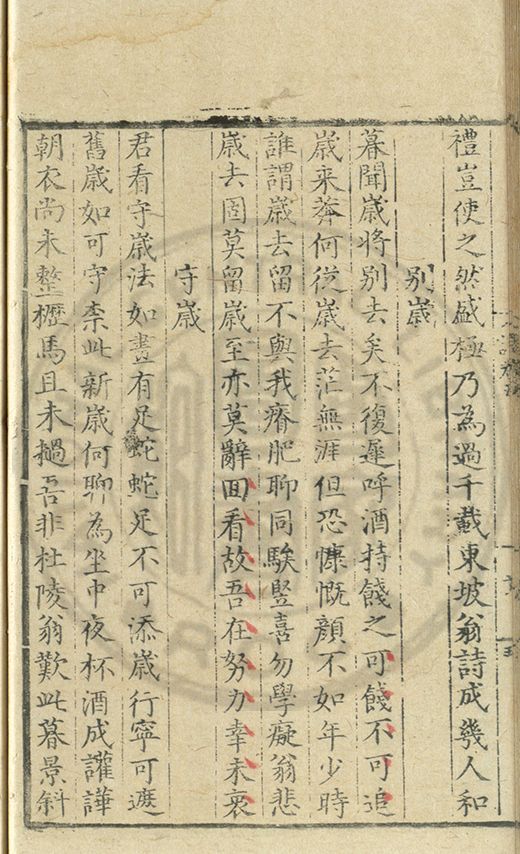 禮豈使之然盛極乃為過千載東坡翁詩成幾人和
別歲
暮聞歲將別去矣不復遲呼酒持餞之可餞不可追
歲来莽何從歲去茫無涯但恐慷慨顏不如年少時
誰謂歲去留不與我瘠肥聊同騃豎喜勿學癡翁悲
歲去固莫留歲至亦莫辭回看故吾在努力幸未衰
守歲
君看守歲法如畫有足蛇蛇足不可添歲行寧可遮
舊歲如可守柰此新歲何聊為坐中夜杯酒成讙譁
朝衣尚未整櫪馬且未撾吾非杜陵翁歎此暮景斜